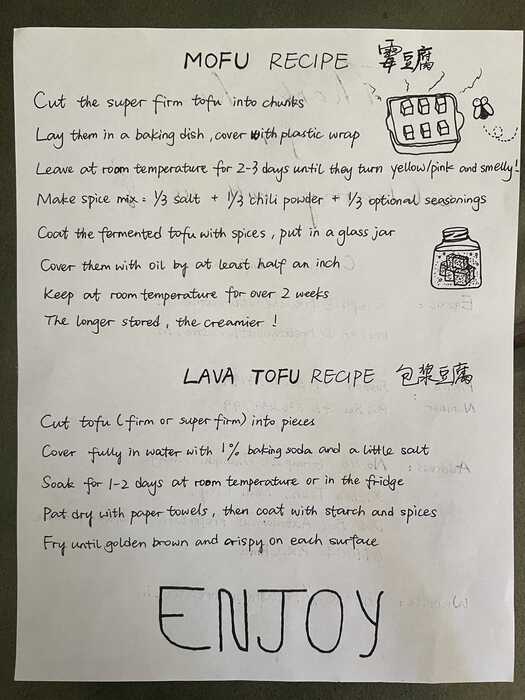 MOFU RECIPE 霉豆腐
Cut the super firm tofu into chunks
Lay them in a baking dish, cover with plastic wrap
Leave at room temperature for 2-3 days until they turn yellow/pink and smelly!
Make spice mix = 1/3 salt + 1/3 chili powder + 1/3 optional seasonings
Coat the fermented tofu with spices, put in a glass jar
Cover them with oil by at least half an inch
Keep at room temperature for over 2 weeks
The longer stored, the creamier !
LAVA TOFU RECIPE 包浆豆腐
Cut tofu (firm or super firm) into pieces
Cover fully in water with 1% baking soda and a little salt
Soak for 1-2 days at room temperature or in the fridge
Pat dry with paper towels, then coat with starch and spices
Fry until golden brown and crispy on each surface
ENJOY